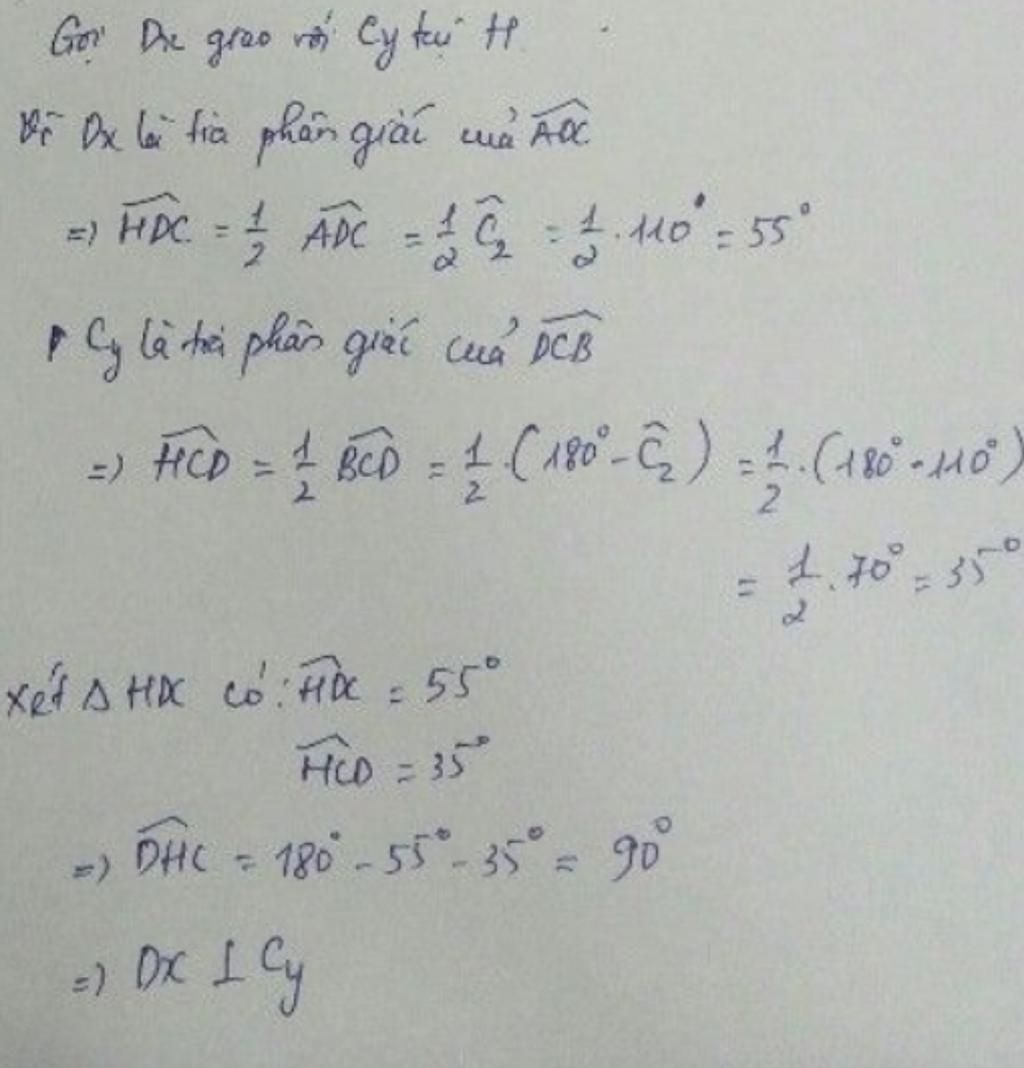 Gọi Dx giao với Cy tại H
Vì Dx là tia phân giác của \widehat{ADC}
=) \widehat{HDC} = \frac{1}{2} \widehat{ADC} = \frac{1}{2} \widehat{C}_2 = \frac{1}{2} . 110° = 55°
Cy là tia phân giác của \widehat{DCB}
=) \widehat{HCD} = \frac{1}{2} \widehat{BCD} = \frac{1}{2} . (180° - \widehat{C}_2) = \frac{1}{2} . (180° - 110°)
= \frac{1}{2} . 70° = 35°
Xét Δ HDC có: \widehat{HDC} = 55°
\widehat{HCD} = 35°
=) \widehat{DHC} = 180° - 55° - 35° = 90°
=) Dx ⊥ Cy